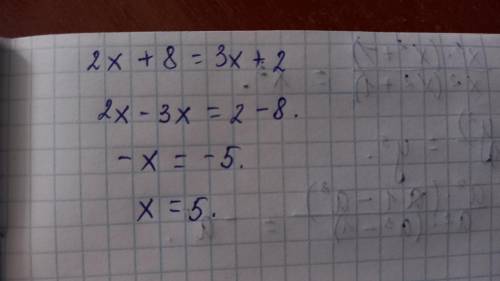 2x + 8 = 3x + 2
2x - 3x = 2 - 8.
-x = -5.
x = 5.